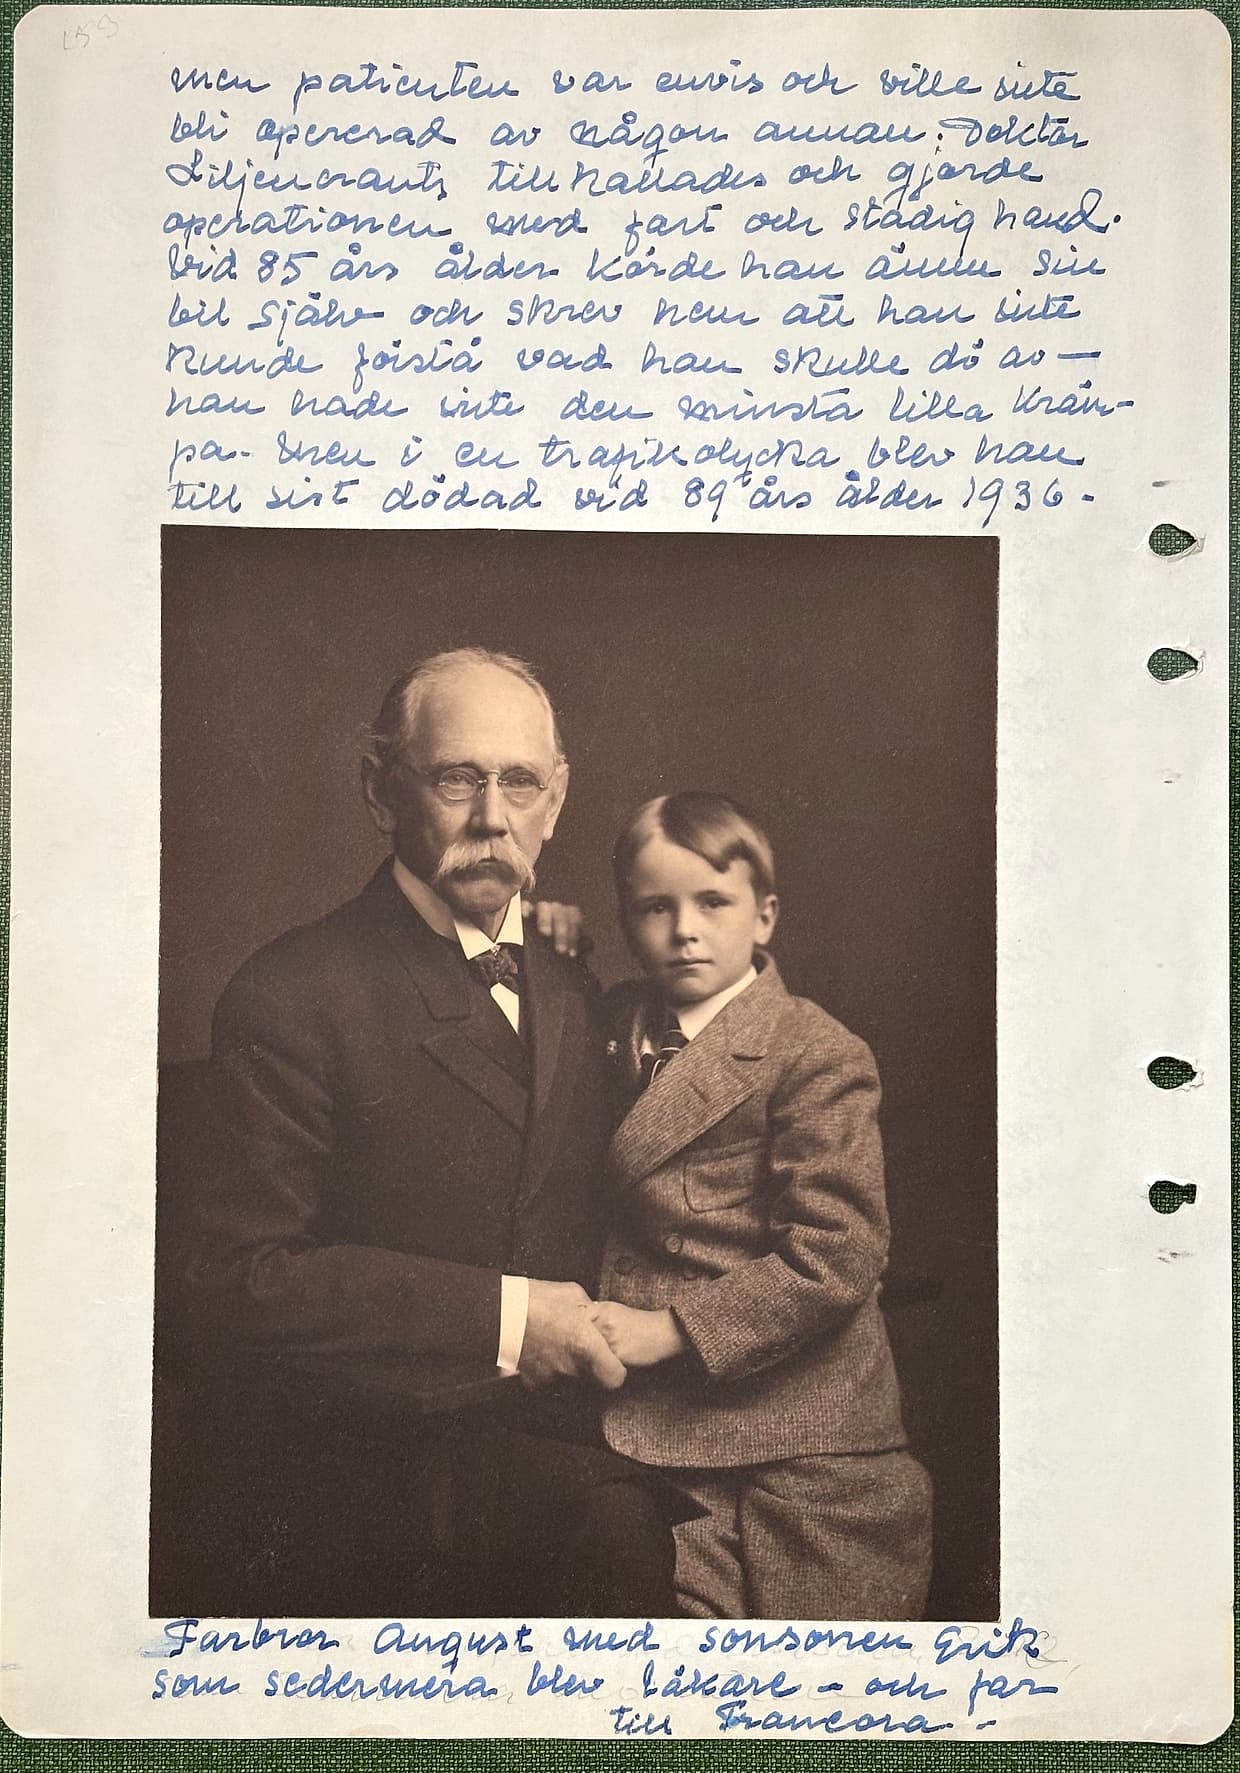 men patienten var envis och ville inte
bli opererad av någon annan. Doktor
Liljencrants tillkallades och gjorde
operationen med fart och stadig hand.
Vid 85 års ålder körde han ännu sin
bil själv och skrev hem att han inte
kunde förstå vad han skulle dö av —
han hade inte den minsta lilla kräm-
pa. Men i en trafikolycka blev han
till sist dödad vid 89 års ålder 1936.
Farbror August med sonsonen Erik
som sedermera blev läkare - och far
till Francora. -